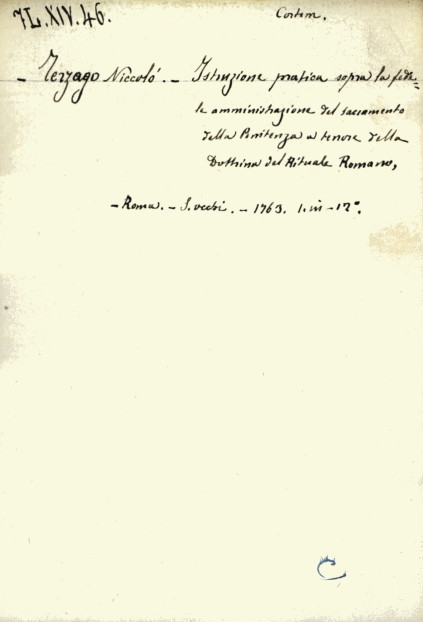 7L.XIV.46.
Cortem.
- Terzago Niccoló. - Istruzione pratica sopra la fede=
le amministrazione del sacramento
della Penitenza a tenore della
Dottrina del Rituale Romano,
- Roma. - - 1763. 1. in - 12°.
C